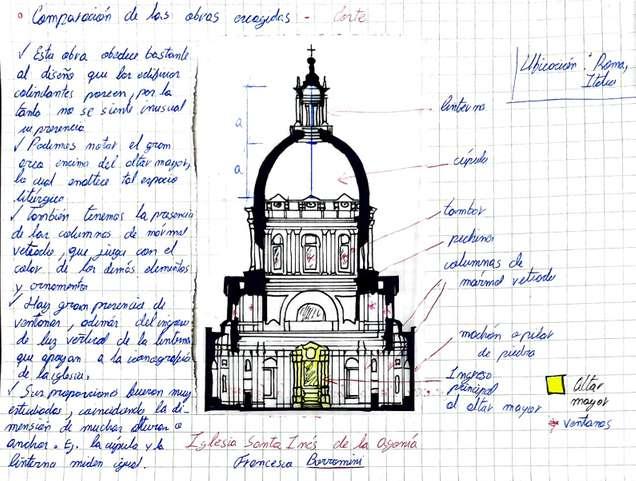 Comparación de las obras escogidas - Corte
✓ Esta obra obedece bastante
al diseño que los edificios
colindantes poseen, por lo
tanto no se siente inusual
su presencia
✓ Podemos notar el gran
arco encima del altar mayor,
la cual enaltece tal espacio
litúrgico
✓ También tenemos la presencia
de las columnas de mármol
veteado, que juega con el
color de los demás elementos
y ornamentos
✓ Hay gran presencia de
ventanas, además del ingreso
de luz vertical de la linterna
que apoyan a la iconografía
de la iglesia.
✓ Sus proporciones fueron muy
estudiadas, coincidiendo la di-
mensión de muchas alturas o
anchos. Ej. la cúpula y la
linterna miden igual.
Ubicación: Roma,
Italia
a
a
linterna
cúpula
tambor
pechina
columnas de
mármol veteado
machón o pilar
de piedra
Ingreso
principal
al altar mayor
Altar
mayor
ventanas
Iglesia Santa Inés de la Agonía
Francesco Borromini